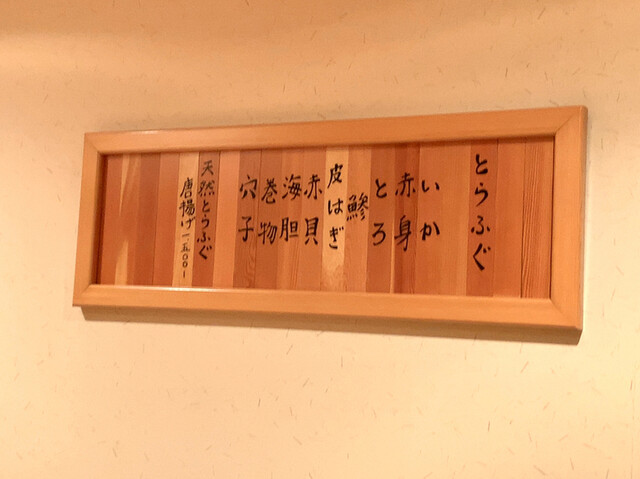 とらふぐ
いか
赤身
とろ
鰺
皮はぎ
赤貝
海胆
巻物
穴子
天然とらふぐ
唐揚げ一五〇〇一